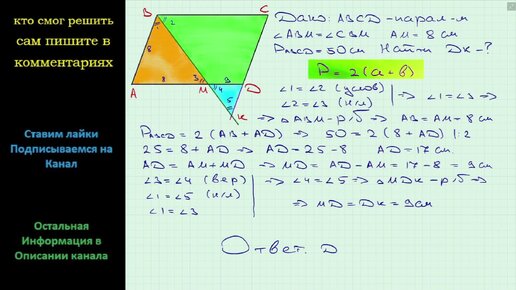 кто смог решить
сам пишите в
комментариях
Ставим лайки
Подписываемся на
Канал
Остальная
Информация в
Описании канала
B
C
1
2
8
3
9
A
8
M
4
D
5
K
Дано: ABCD - парал-м
∠ABM = ∠CBM AM = 8 см
PABCD = 50 см Найти DK - ?
P = 2(a + b)
∠1 = ∠2 (услов)
∠2 = ∠3 (н/л) ⇒ ∠1 = ∠3 ⇒
⇒ △ABM - р/б ⇒ AB = AM = 8 см
PABCD = 2 (AB + AD) ⇒ 50 = 2 (8 + AD) |:2
25 = 8 + AD ⇒ AD = 25 - 8 AD = 17 см.
AD = AM + MD ⇒ MD = AD - AM = 17 - 8 = 9 см
∠3 = ∠4 (вер)
∠1 = ∠5 (н/л) ⇒ ∠4 = ∠5 ⇒ △MDK - р/б ⇒
∠1 = ∠3
⇒ MD = DK = 9 см
Ответ. D